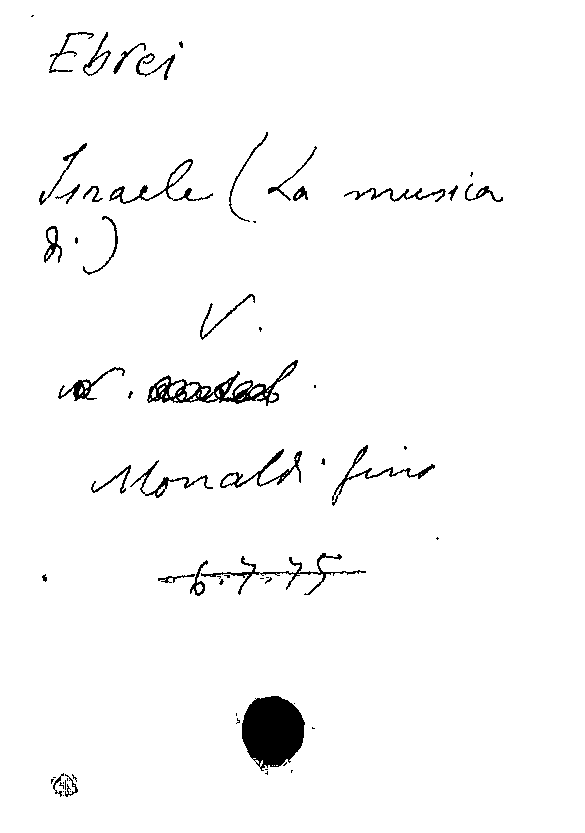 Ebrei
Israele (La musica
di)
V.
Monaldi Gino
6.7.75